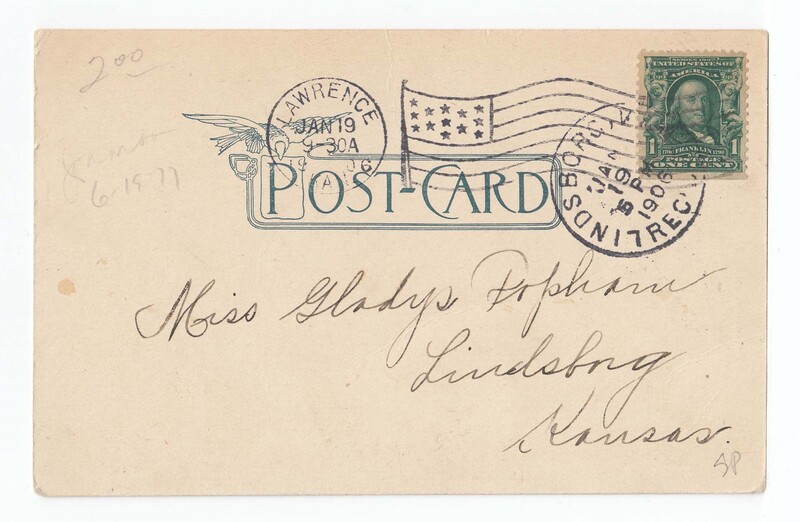 2 00
LAWRENCE
JAN 19
9-30A
6-19-77
POST-CARD
SERIES 1902
UNITED STATES OF
AMERICA
1 FRANKLIN 1
POSTAGE
ONE CENT
LINDSBORG
JAN
19
5 PM
1906
REC'D
Miss Gladys Popham
Lindsborg
Kansas.
SP